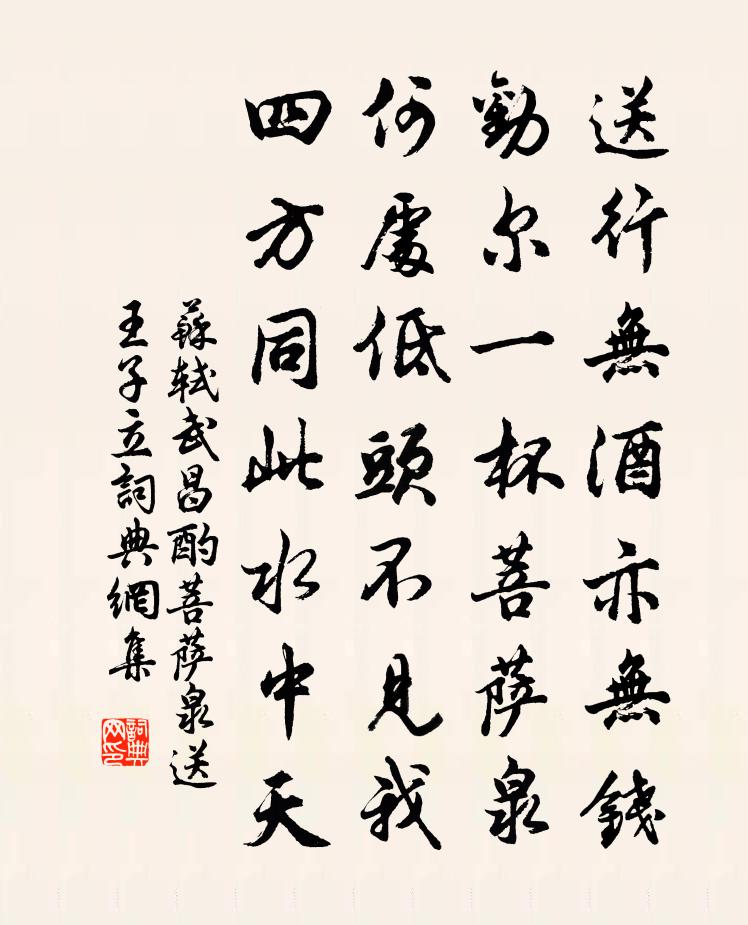 送行無酒亦無錢
勸尔一杯菩薩泉
何處低頭不見我
四方同此水中天
蘇軾武昌酌菩薩泉送
王子立詞典網集
詞典
网印